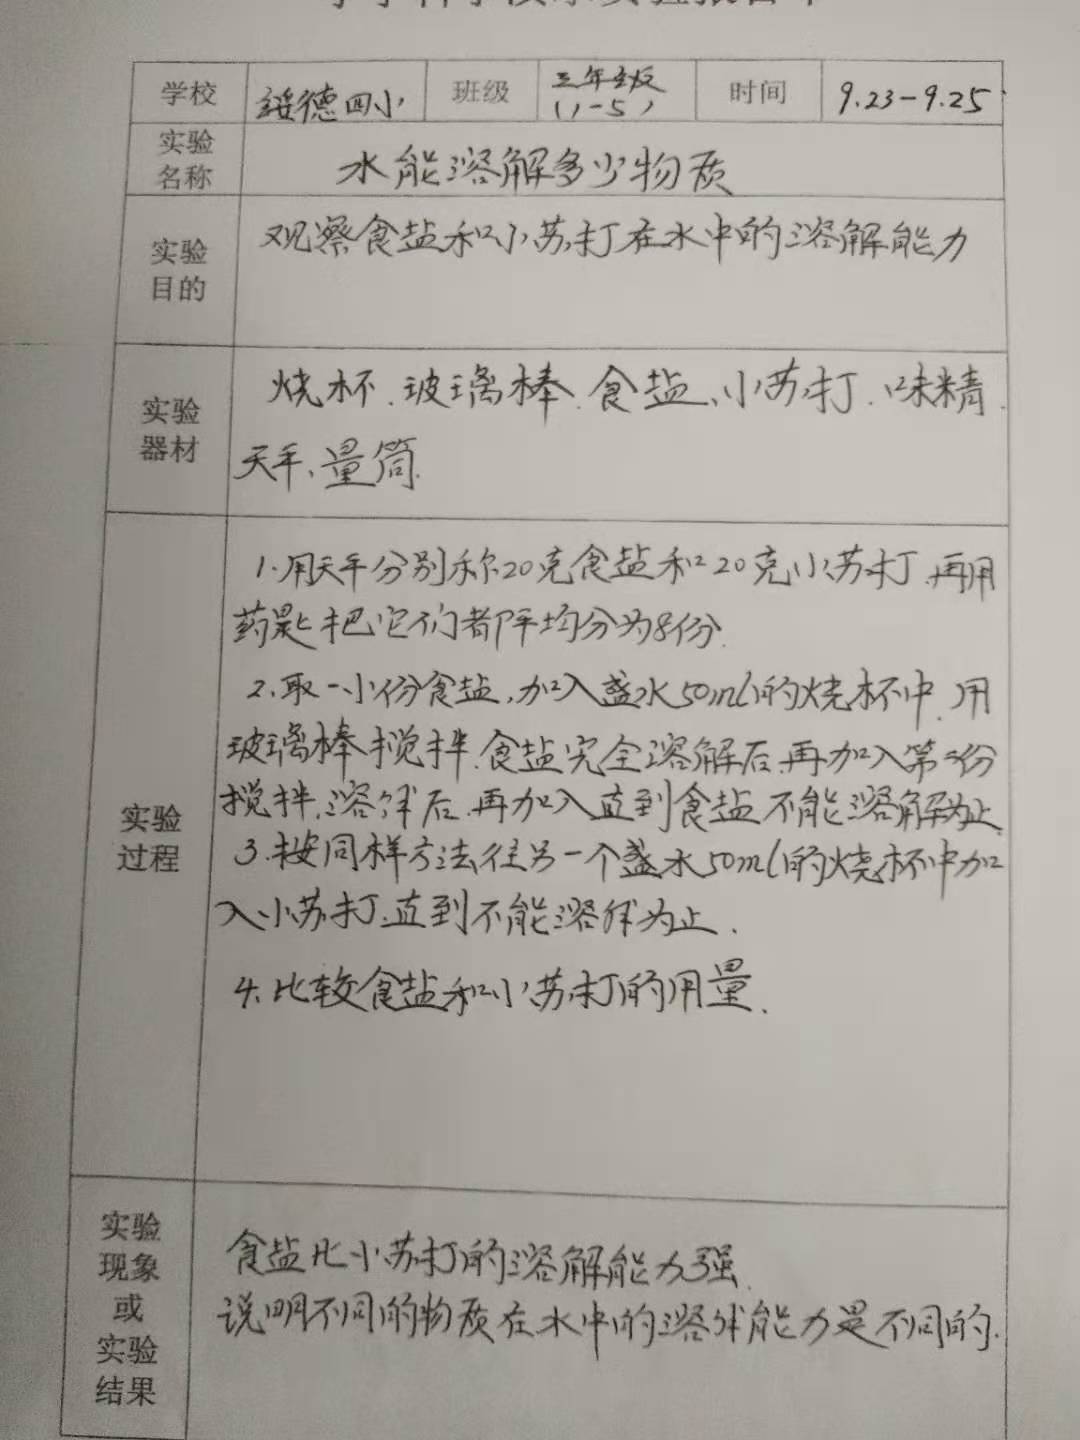 学校 绥德四小 班级 三年级 (1-5) 时间 9.23-9.25
实验名称 水能溶解多少物质
实验目的 观察食盐和小苏打在水中的溶解能力
实验器材 烧杯、玻璃棒、食盐、小苏打、味精、
天平、量筒.
实验过程
1.用天平分别称20克食盐和20克小苏打,再用
药匙把它们都平均分为8份.
2.取一小份食盐,加入盛水50ml的烧杯中,用
玻璃棒搅拌,食盐完全溶解后,再加入第2份
搅拌,溶解后,再加入直到食盐不能溶解为止.
3.按同样方法往另一个盛水50ml的烧杯中加
入小苏打,直到不能溶解为止.
4.比较食盐和小苏打的用量.
实验现象或实验结果
食盐比小苏打的溶解能力强.
说明不同的物质在水中的溶解能力是不同的.